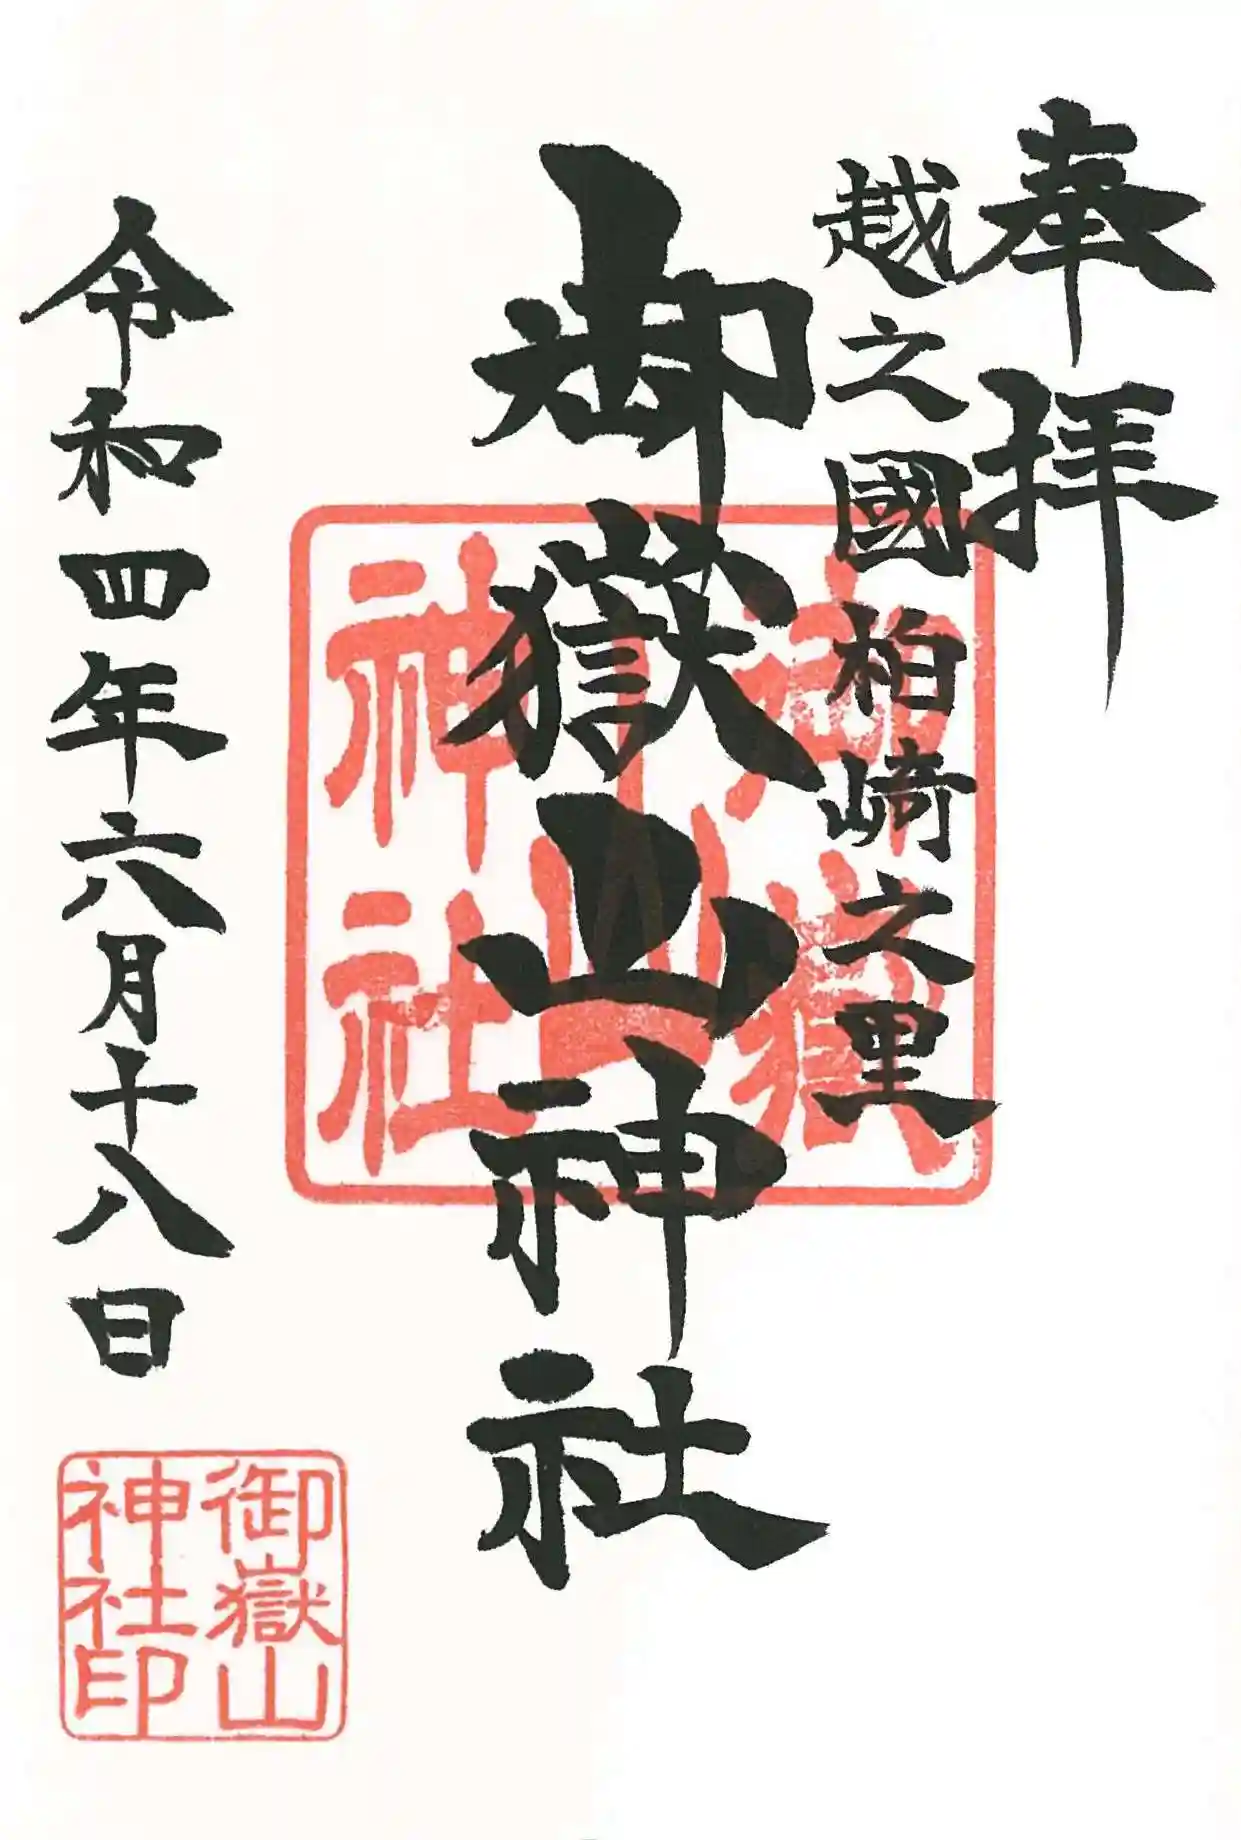 奉拝
越之國柏崎之里
御嶽山神社
令和四年六月十八日
御嶽
山
神社
御嶽山
神社印